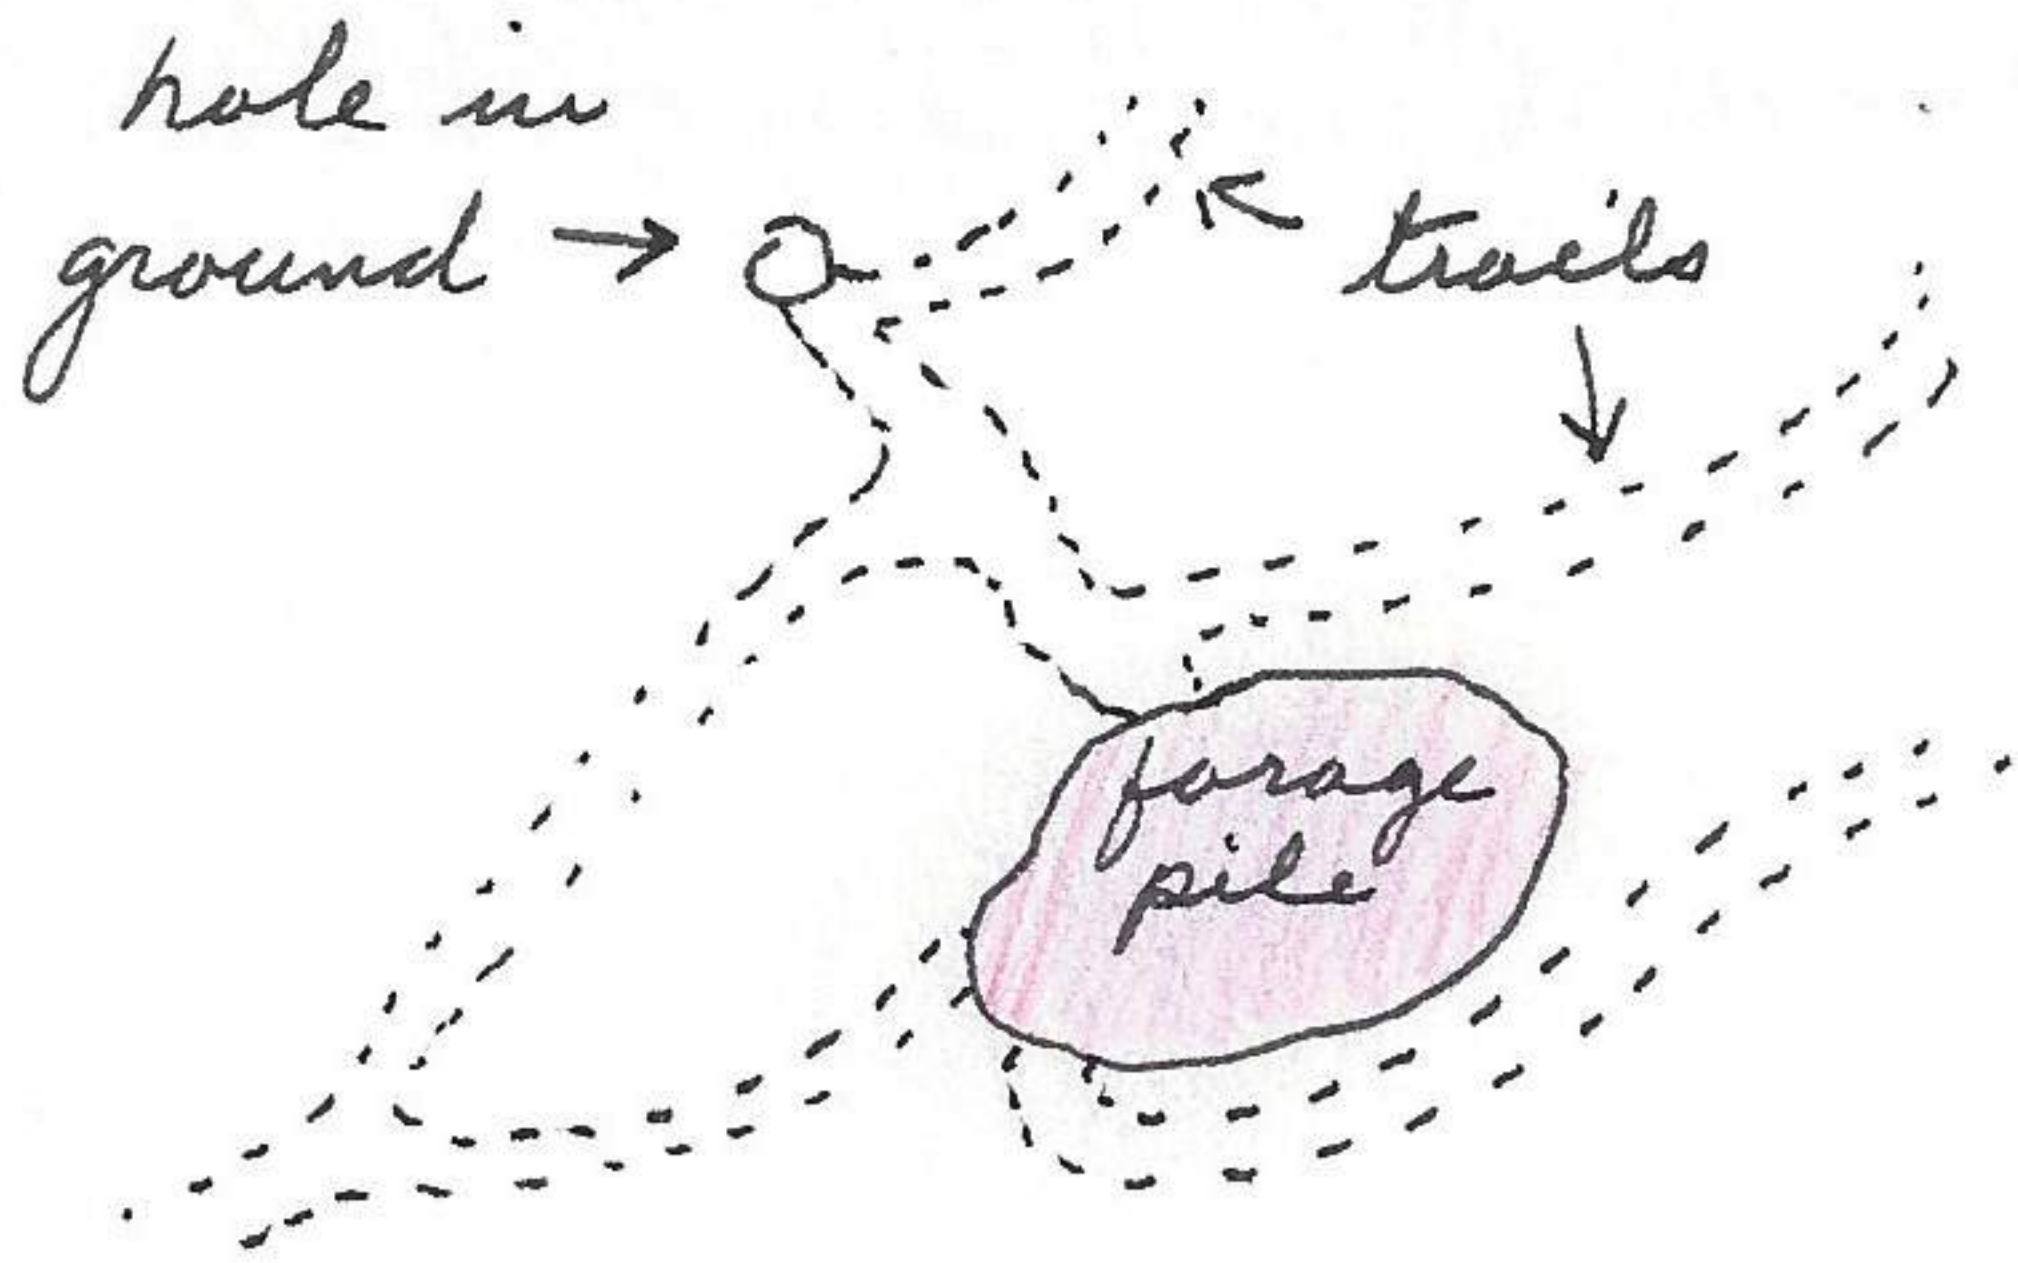 hole in
ground →
trails
forage
pile